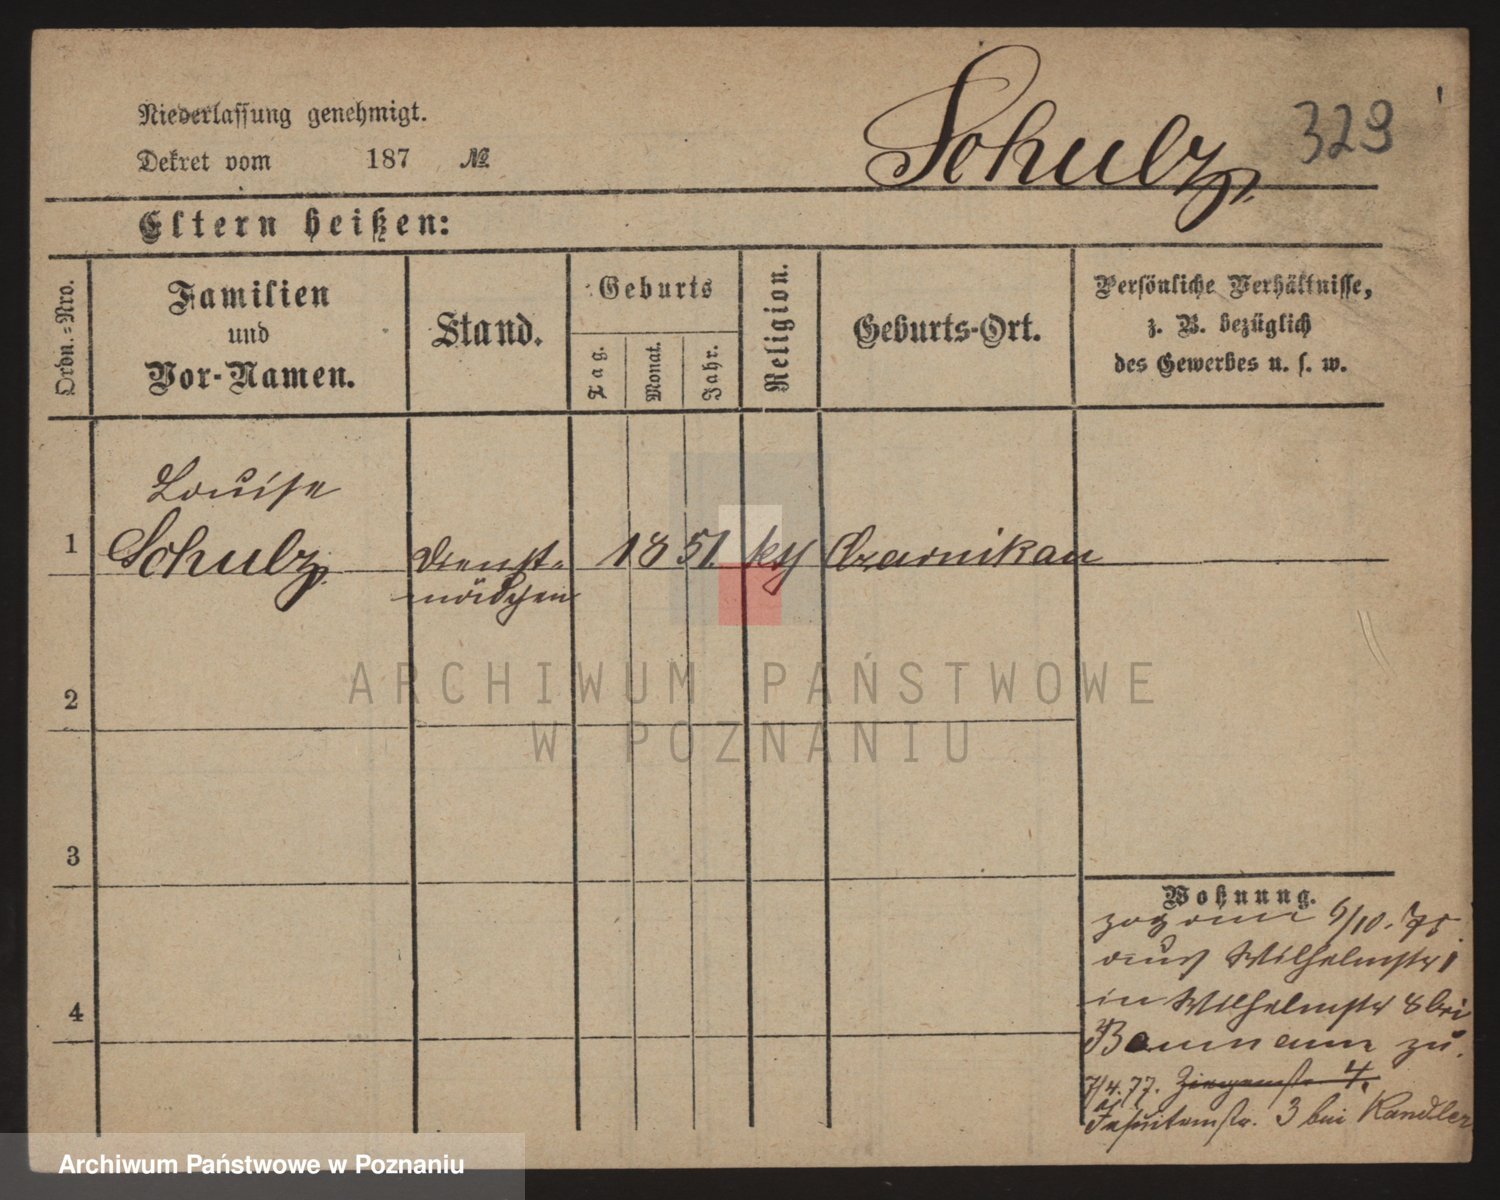 Niederlassung genehmigt.
Dekret vom 187 №
Schulz, 329
Eltern heißen:
Ordn.-Nro.
Familien
und
Vor-Namen.
Stand.
Geburts
Tag.
Monat.
Jahr.
Religion.
Geburts-Ort.
Persönliche Verhältnisse,
z. B. bezüglich
des Gewerbes u. s. w.
Louise
1 Schulz, Dienst- 1851. kth Czarnikau
mädchen
2
ARCHIWUM PAŃSTWOWE
W POZNANIU
3
Wohnung.
zog am 6/10. 75.
aus Wilhelmstr 1
in Wilhelmstr 8 bei
Baumann zu.
7/4. 77. Ziegenstr 4.
Jesuitenstr. 3 bei Kandler
4
Archiwum Państwowe w Poznaniu